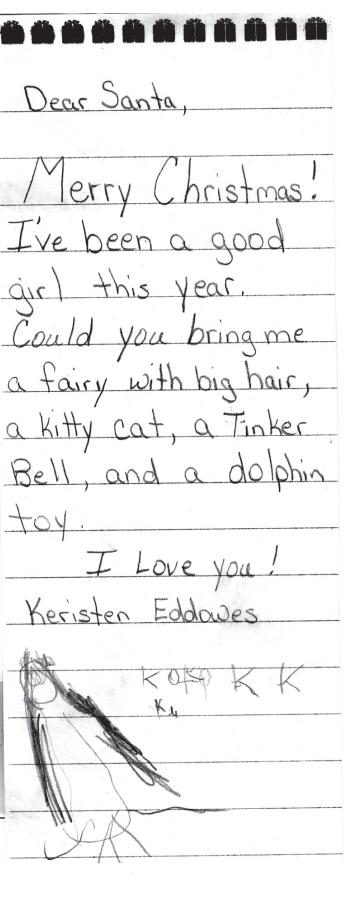 Dear Santa,
Merry Christmas!
I've been a good
girl this year.
Could you bring me
a fairy with big hair,
a kitty cat, a Tinker
Bell, and a dolphin
toy.
I Love you!
Keristen Eddowes
K K K